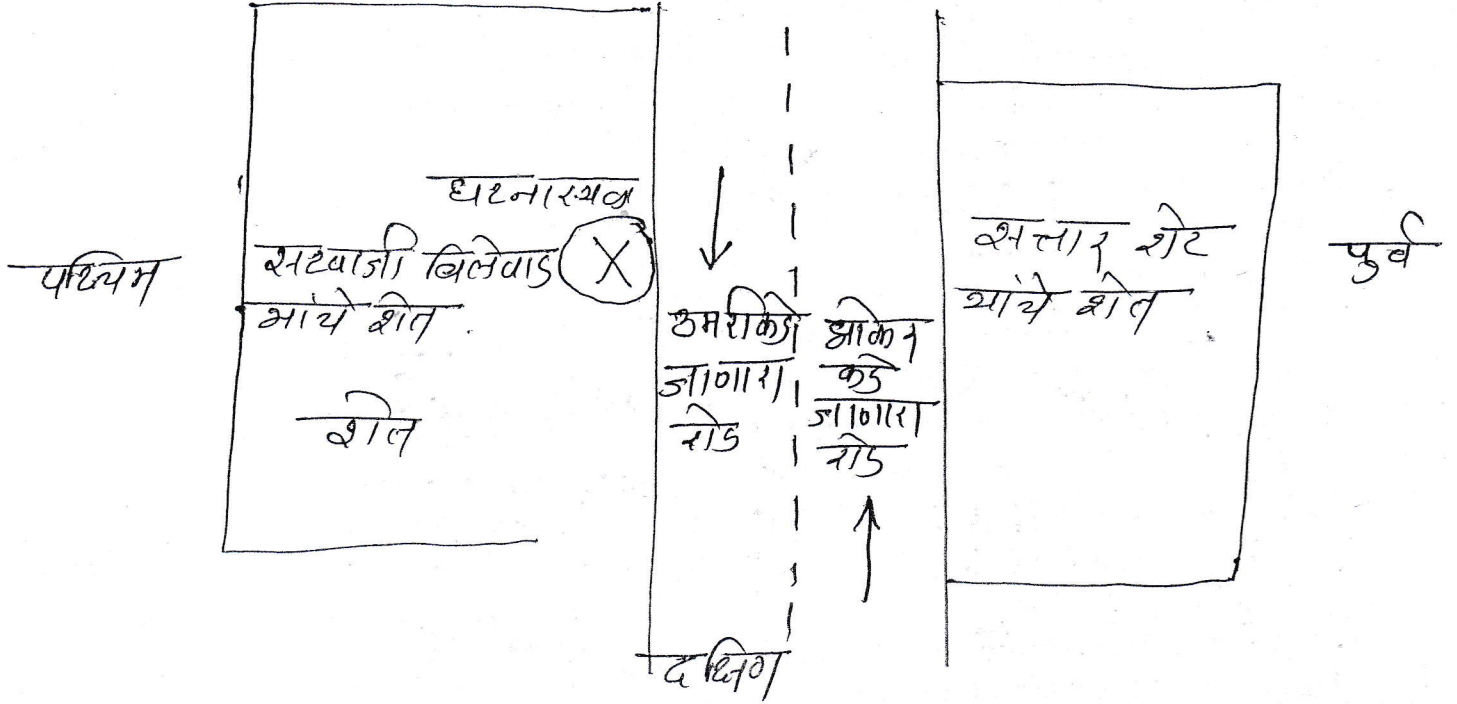 घटनास्थळ
पश्चिम
सटवाजी बिलेवाड
यांचे शेत
शेत
उमरीकडे
जाणारा
रोड
भोकर
कडे
जाणारा
रोड
सत्तार शेट
यांचे शेत
पुर्व
दक्षिण